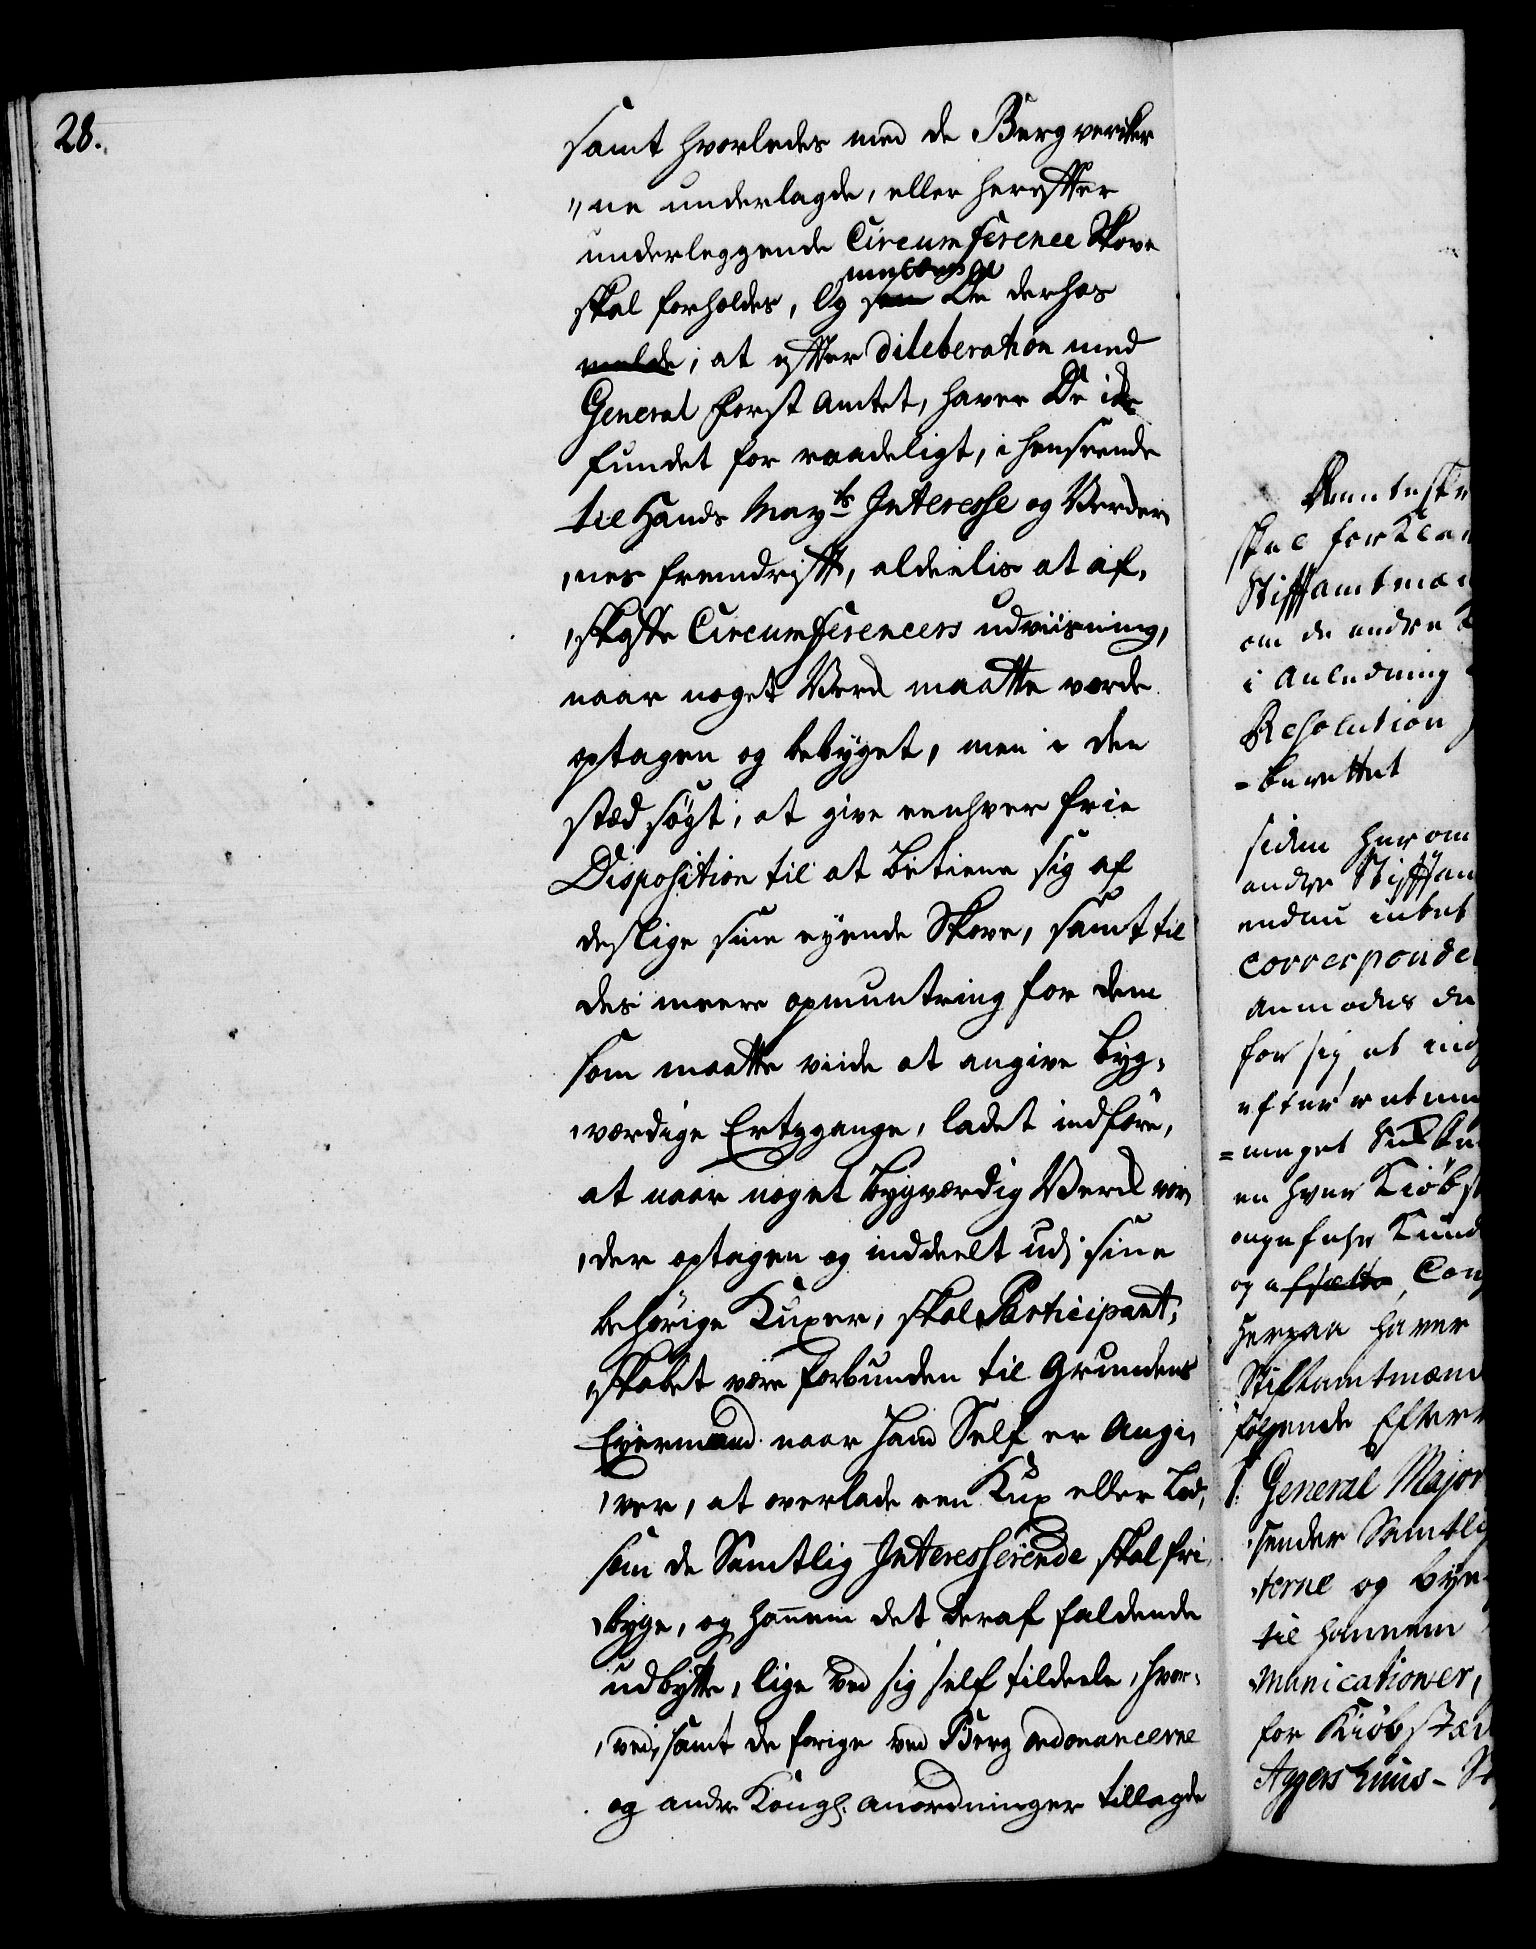 28.
samt hvorledes med de Bergverker
"ne underlagde, eller herefter
underleggende Circumference Skove
skal forholdes, Og som De derhos
melde; at efter dileberation med
General Forst Amtet, haver De icke
fundet for raadeligt, i henseende
til Hands Mayts Interesse og Verker,
,nes fremdrifft, aldeelis at af,
,skaffe Circumferencers udviisning,
naar noget Verk maatte vorde
optagen og bebyget, men i den
stæd søgt, at give eenhver frie
Disposition til at betiene sig af
deslige sine eyende Skove, samt til
des meere opmuntring for dem
som maatte viide at angive byg,
,værdige Ertzgange, ladet indføre,
at naar noget bygværdig Verk vor,
,der optagen og inddeelt udj sine
behørige Kuxer, skal Participant,
,skabet være forbunden til Grundens
Eyermand naar hand Self er Angi,
,ver, at overlade een Kux eller Lod,
som de Samtlig Interesserende skal fri,
,byge, og hannem det deraf faldende
udbytte, lige ved sig self tildeele, hvor,
,ved, samt de forige ved Berg ordonancerne
og andre Kongl. anordninger tillagde
skal forklar
Stifftamtmæn
om de andre
i Anledning
Resolution
-berettet
siden her om
andre Stifftam
endnu intet
corresponde
anmodes de
for sig at ind
=meget
en hver Kiøbst
ongefehr Kund
Herpaa haver
Stiftamtmænd
følgende Efter
1. General Major
sender Samtlig
,terne og bÿe
til hannem
,municationer,
for Kiøbstæd
Aggershuus-